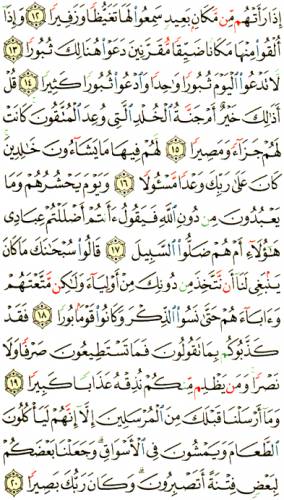 إِذَا رَأَتْهُم مِّن مَّكَانٍ بَعِيدٍ سَمِعُوا۟ لَهَا تَغَيُّظًا وَزَفِيرًا ١٢ وَإِذَآ
أُلْقُوا۟ مِنْهَا مَكَانًا ضَيِّقًا مُّقَرَّنِينَ دَعَوْا۟ هُنَالِكَ ثُبُورًا ١٣
لَّا تَدْعُوا۟ ٱلْيَوْمَ ثُبُورًا وَٰحِدًا وَٱدْعُوا۟ ثُبُورًا كَثِيرًا ١٤ قُلْ
أَذَٰلِكَ خَيْرٌ أَمْ جَنَّةُ ٱلْخُلْدِ ٱلَّتِى وُعِدَ ٱلْمُتَّقُونَ كَانَتْ
لَهُمْ جَزَآءً وَمَصِيرًا ١٥ لَّهُمْ فِيهَا مَا يَشَآءُونَ خَٰلِدِينَ
كَانَ عَلَىٰ رَبِّكَ وَعْدًا مَّسْـُٔولًا ١٦ وَيَوْمَ يَحْشُرُهُمْ وَمَا
يَعْبُدُونَ مِن دُونِ ٱللَّهِ فَيَقُولُ ءَأَنتُمْ أَضْلَلْتُمْ عِبَادِى
هَٰٓؤُلَآءِ أَمْ هُمْ ضَلُّوا۟ ٱلسَّبِيلَ ١٧ قَالُوا۟ سُبْحَٰنَكَ مَا كَانَ
يَنۢبَغِى لَنَآ أَن نَّتَّخِذَ مِن دُونِكَ مِنْ أَوْلِيَآءَ وَلَٰكِن مَّتَّعْتَهُمْ
وَءَابَآءَهُمْ حَتَّىٰ نَسُوا۟ ٱلذِّكْرَ وَكَانُوا۟ قَوْمًۢا بُورًا ١٨ فَقَدْ
كَذَّبُوكُم بِمَا تَقُولُونَ فَمَا تَسْتَطِيعُونَ صَرْفًا وَلَا
نَصْرًا وَمَن يَظْلِم مِّنكُمْ نُذِقْهُ عَذَابًا كَبِيرًا ١٩
وَمَآ أَرْسَلْنَا قَبْلَكَ مِنَ ٱلْمُرْسَلِينَ إِلَّآ إِنَّهُمْ لَيَأْكُلُونَ
ٱلطَّعَامَ وَيَمْشُونَ فِى ٱلْأَسْوَاقِ وَجَعَلْنَا بَعْضَكُمْ
لِبَعْضٍ فِتْنَةً أَتَصْبِرُونَ وَكَانَ رَبُّكَ بَصِيرًا ٢٠